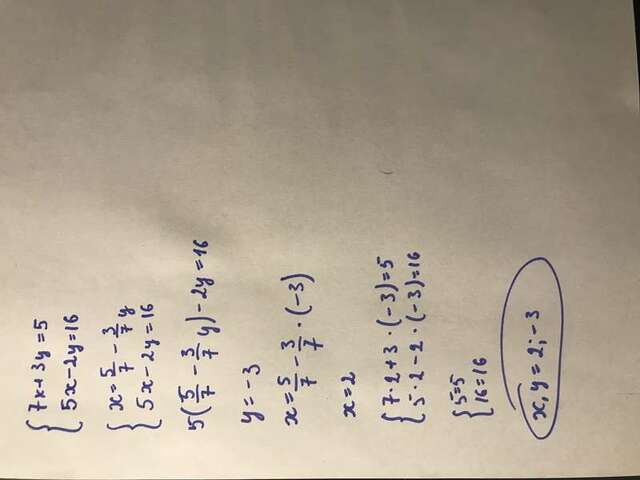 7x+3y=5
5x-2y=16
x=5/7-3/7y
5x-2y=16
5(5/7-3/7y)-2y=16
y=-3
x=5/7-3/7·(-3)
x=2
7·2+3·(-3)=5
5·2-2·(-3)=16
5=5
16=16
x,y=2;-3